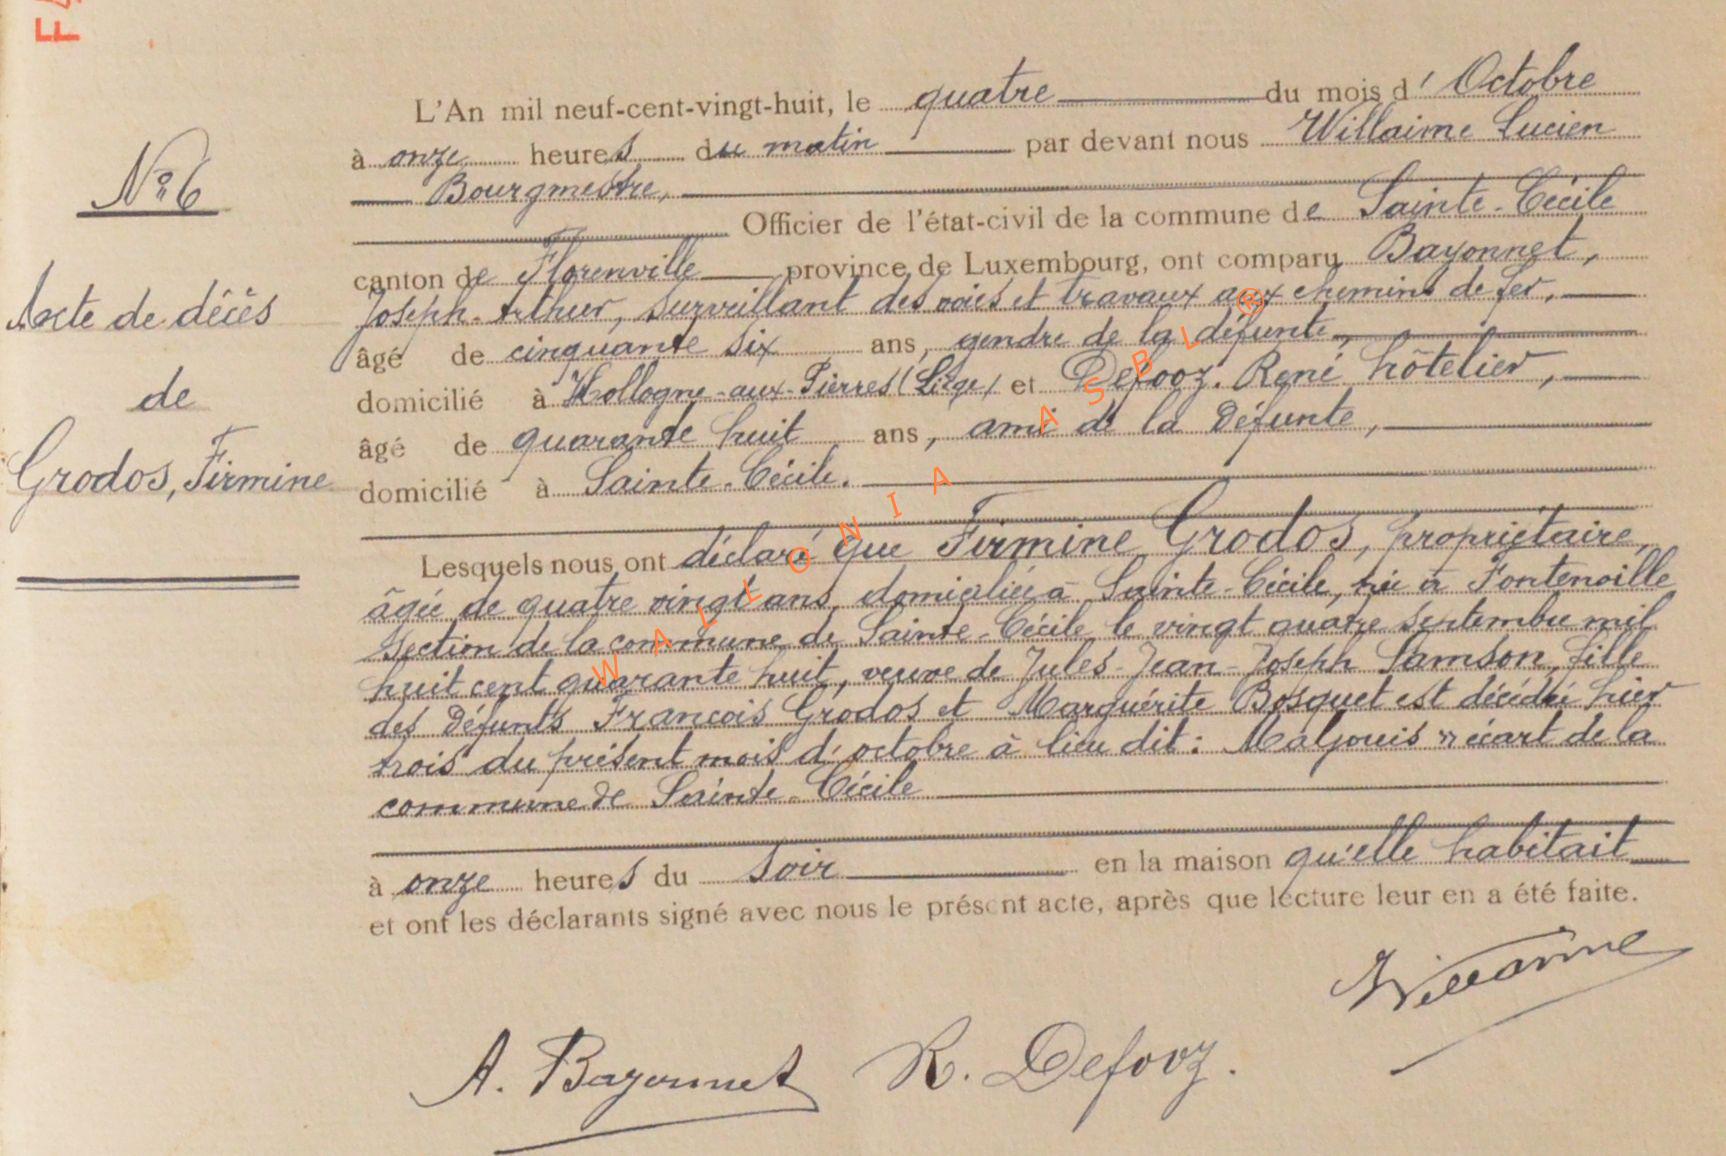 N° 6
Acte de décès
de
Grodos, Firmine
L'An mil neuf-cent-vingt-huit, le quatre du mois d'Octobre
à onze heures du matin par devant nous Willaime Lucien
Bourgmestre,
Officier de l'état-civil de la commune de Sainte-Cécile
canton de Florenville province de Luxembourg, ont comparu Bayonnet,
Joseph-Arthur, surveillant des voies et travaux aux chemins de fer,
âgé de cinquante six ans, gendre de la défunte,
domicilié à Hollogne-aux-Pierres (Liège) et Defooz. René hôtelier,
âgé de quarante huit ans, ami de la Défunte,
domicilié à Sainte-Cécile.
Lesquels nous ont déclaré que Firmine Grodos, propriétaire,
âgée de quatre vingt ans, domiciliée à Sainte-Cécile, née à Fontenoille
section de la commune de Sainte-Cécile, le vingt quatre septembre mil
huit cent quarante huit, veuve de Jules-Jean-Joseph Samson, fille
des Défunts François Grodos et Marguérite Bosquet est décédée hier
trois du présent mois d'octobre à lieu dit: Maljouis " écart de la
commune de Sainte-Cécile
à onze heures du soir en la maison qu'elle habitait
et ont les déclarants signé avec nous le présent acte, après que lecture leur en a été faite.
Willaime
A. Bayonnet R. Defooz.
WALLONIA ASBL ®